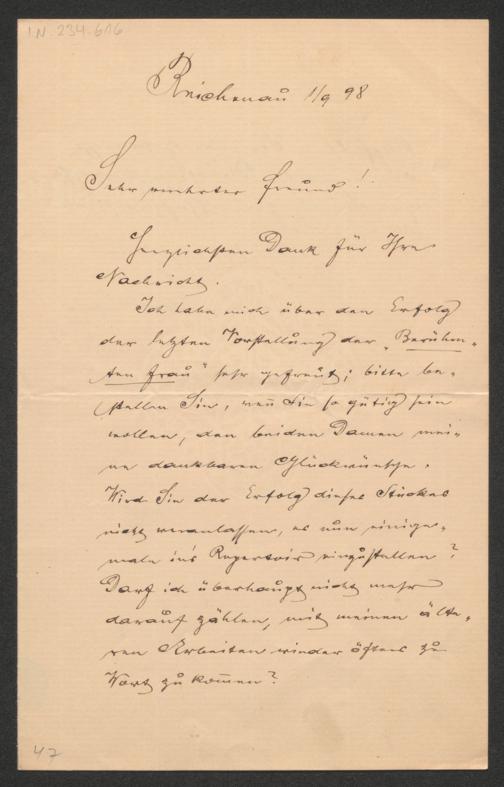 I.N. 234.616
Reichenau 11/9 98
Sehr verehrter Freund!
Herzlichsten Dank für Ihre
Nachricht.
Ich habe mich über den Erfolg
der letzten Vorstellung der „Berühm-
ten Frau" sehr gefreut; bitte be-
stellen Sie, wenn Sie so gütig sein
wollen, den beiden Damen mei-
ne dankbaren Glückwünsche.
Wird Sie der Erfolg dieses Stückes
nicht veranlassen, es nun einige-
male in's Repertoir einzustellen?
Darf ich überhaupt nicht mehr
darauf zählen, mit meinen älte-
ren Arbeiten wieder öftens zu
Wort zu kommen?
47